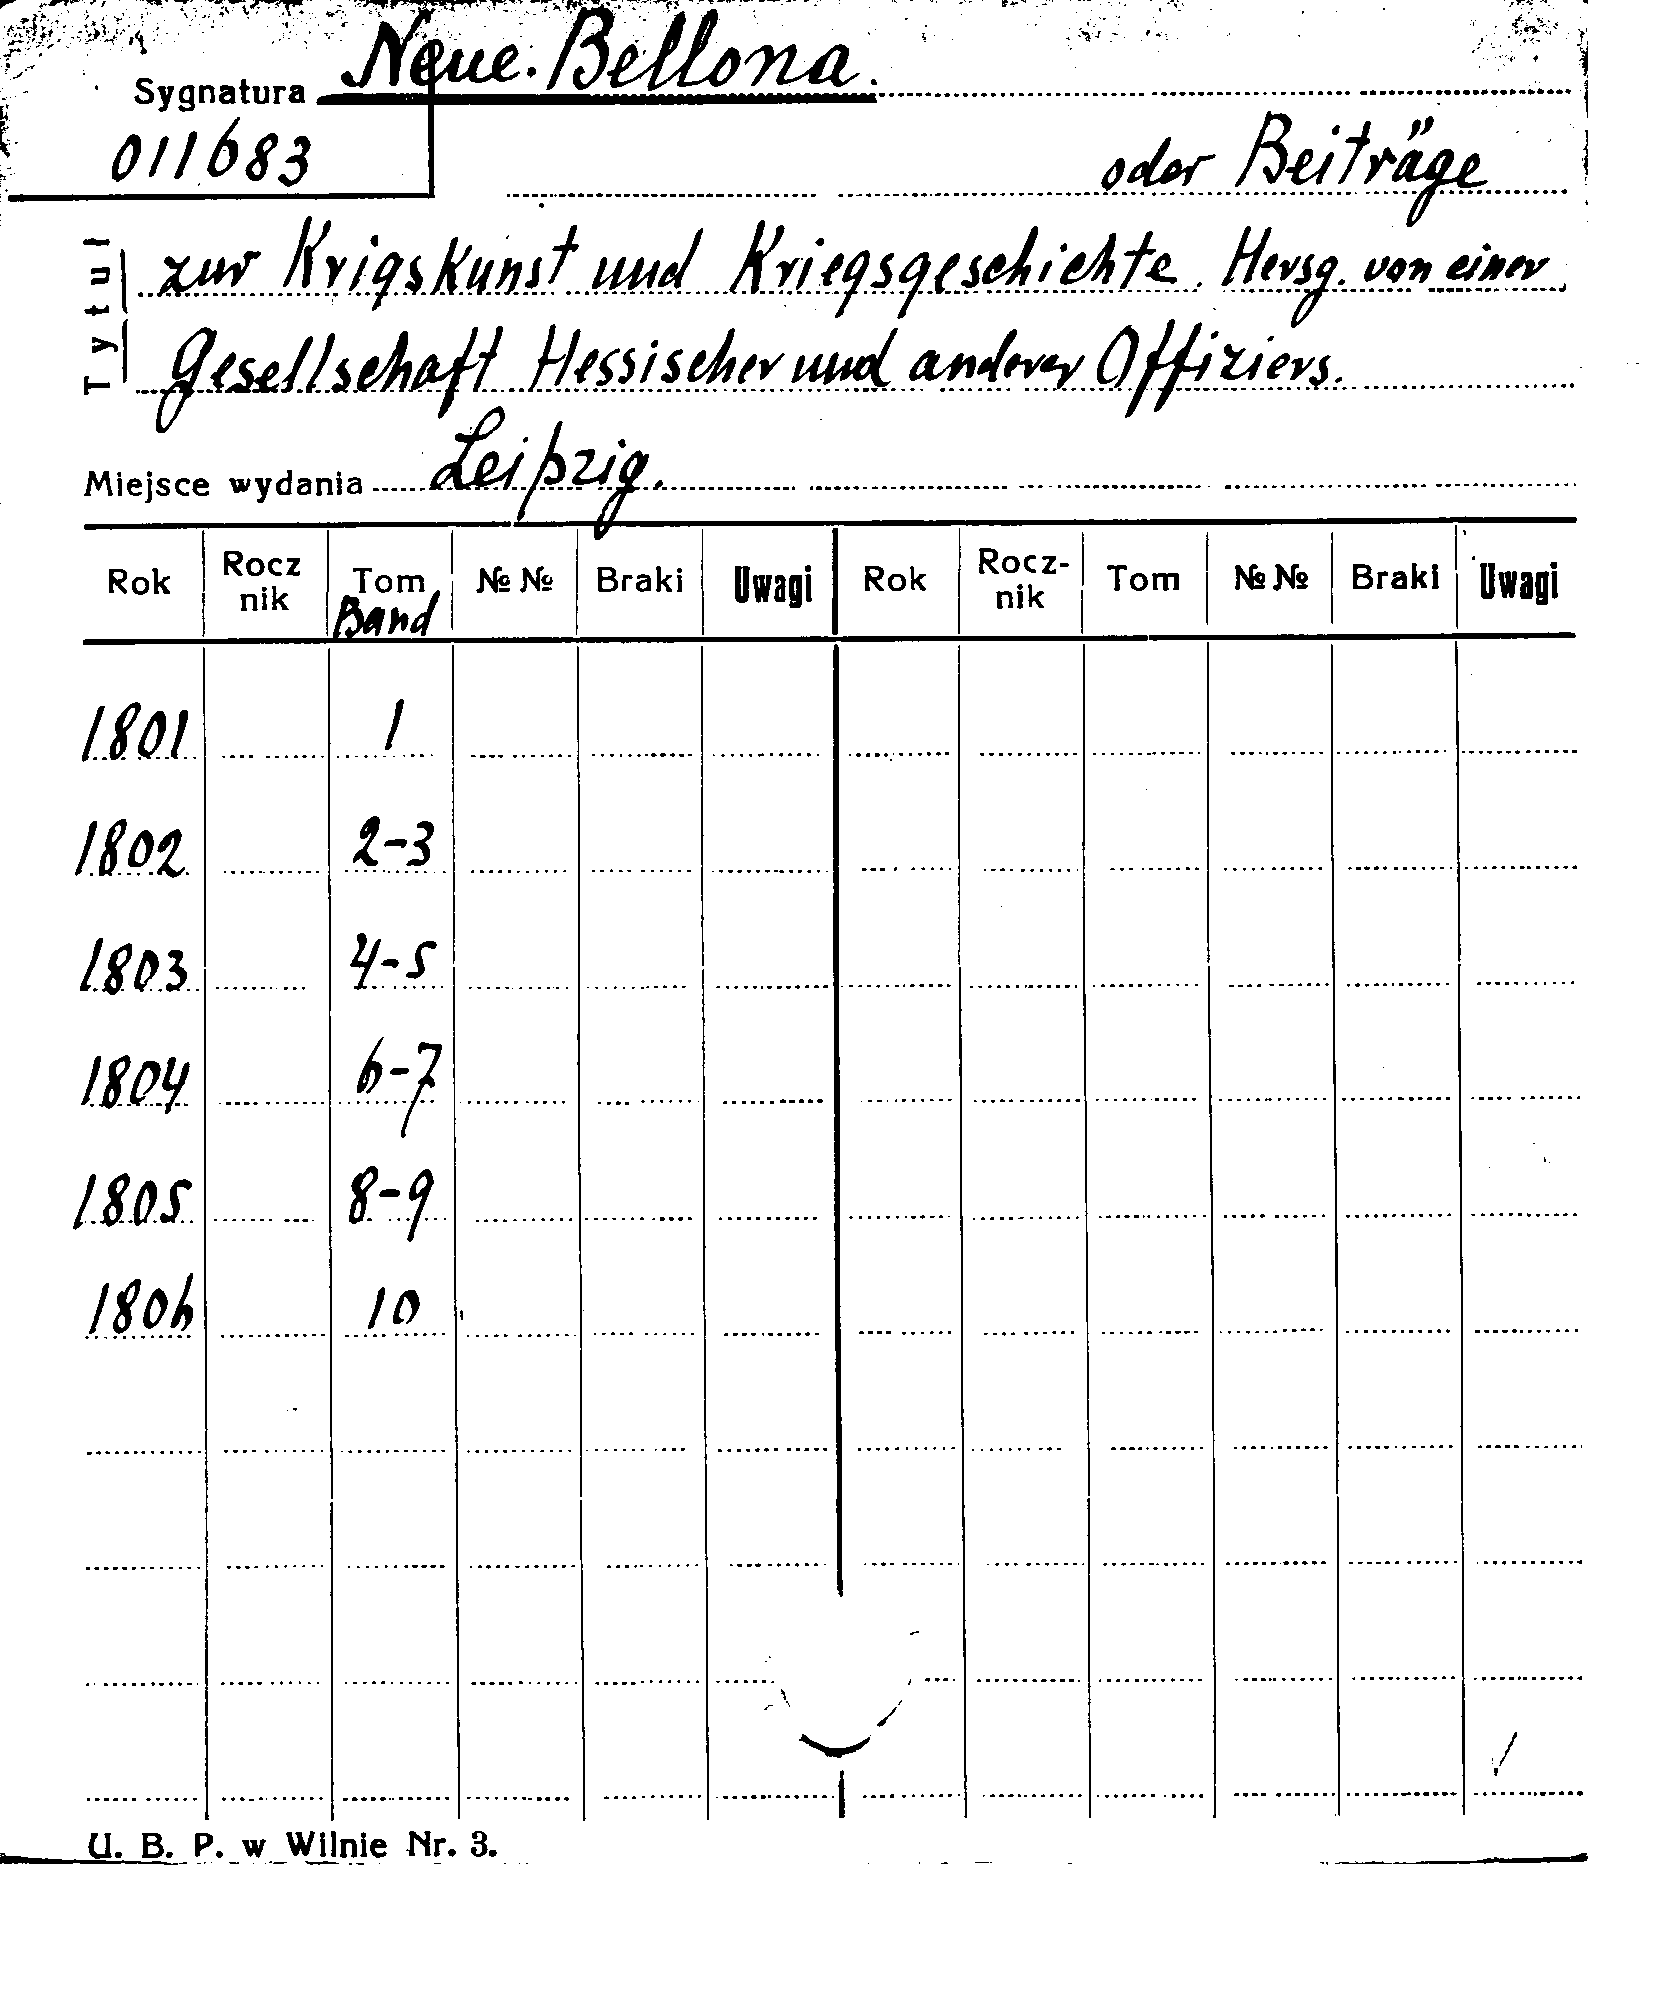 Neue Bellona.
Sygnatura
011683
oder Beiträge
Tytuł
zur Krigskunst und Kriegsgeschichte. Hersg. von einer
Gesellschaft Hessischer und anderer Offiziers.
Miejsce wydania Leipzig.
Rok Rocz nik Tom № № Braki Uwagi Rok Rocz- nik Tom № № Braki Uwagi
Band
1801 1
1802 2-3
1803 4-5
1804 6-7
1805 8-9
1806 10
U. B. P. w Wilnie Nr. 3.